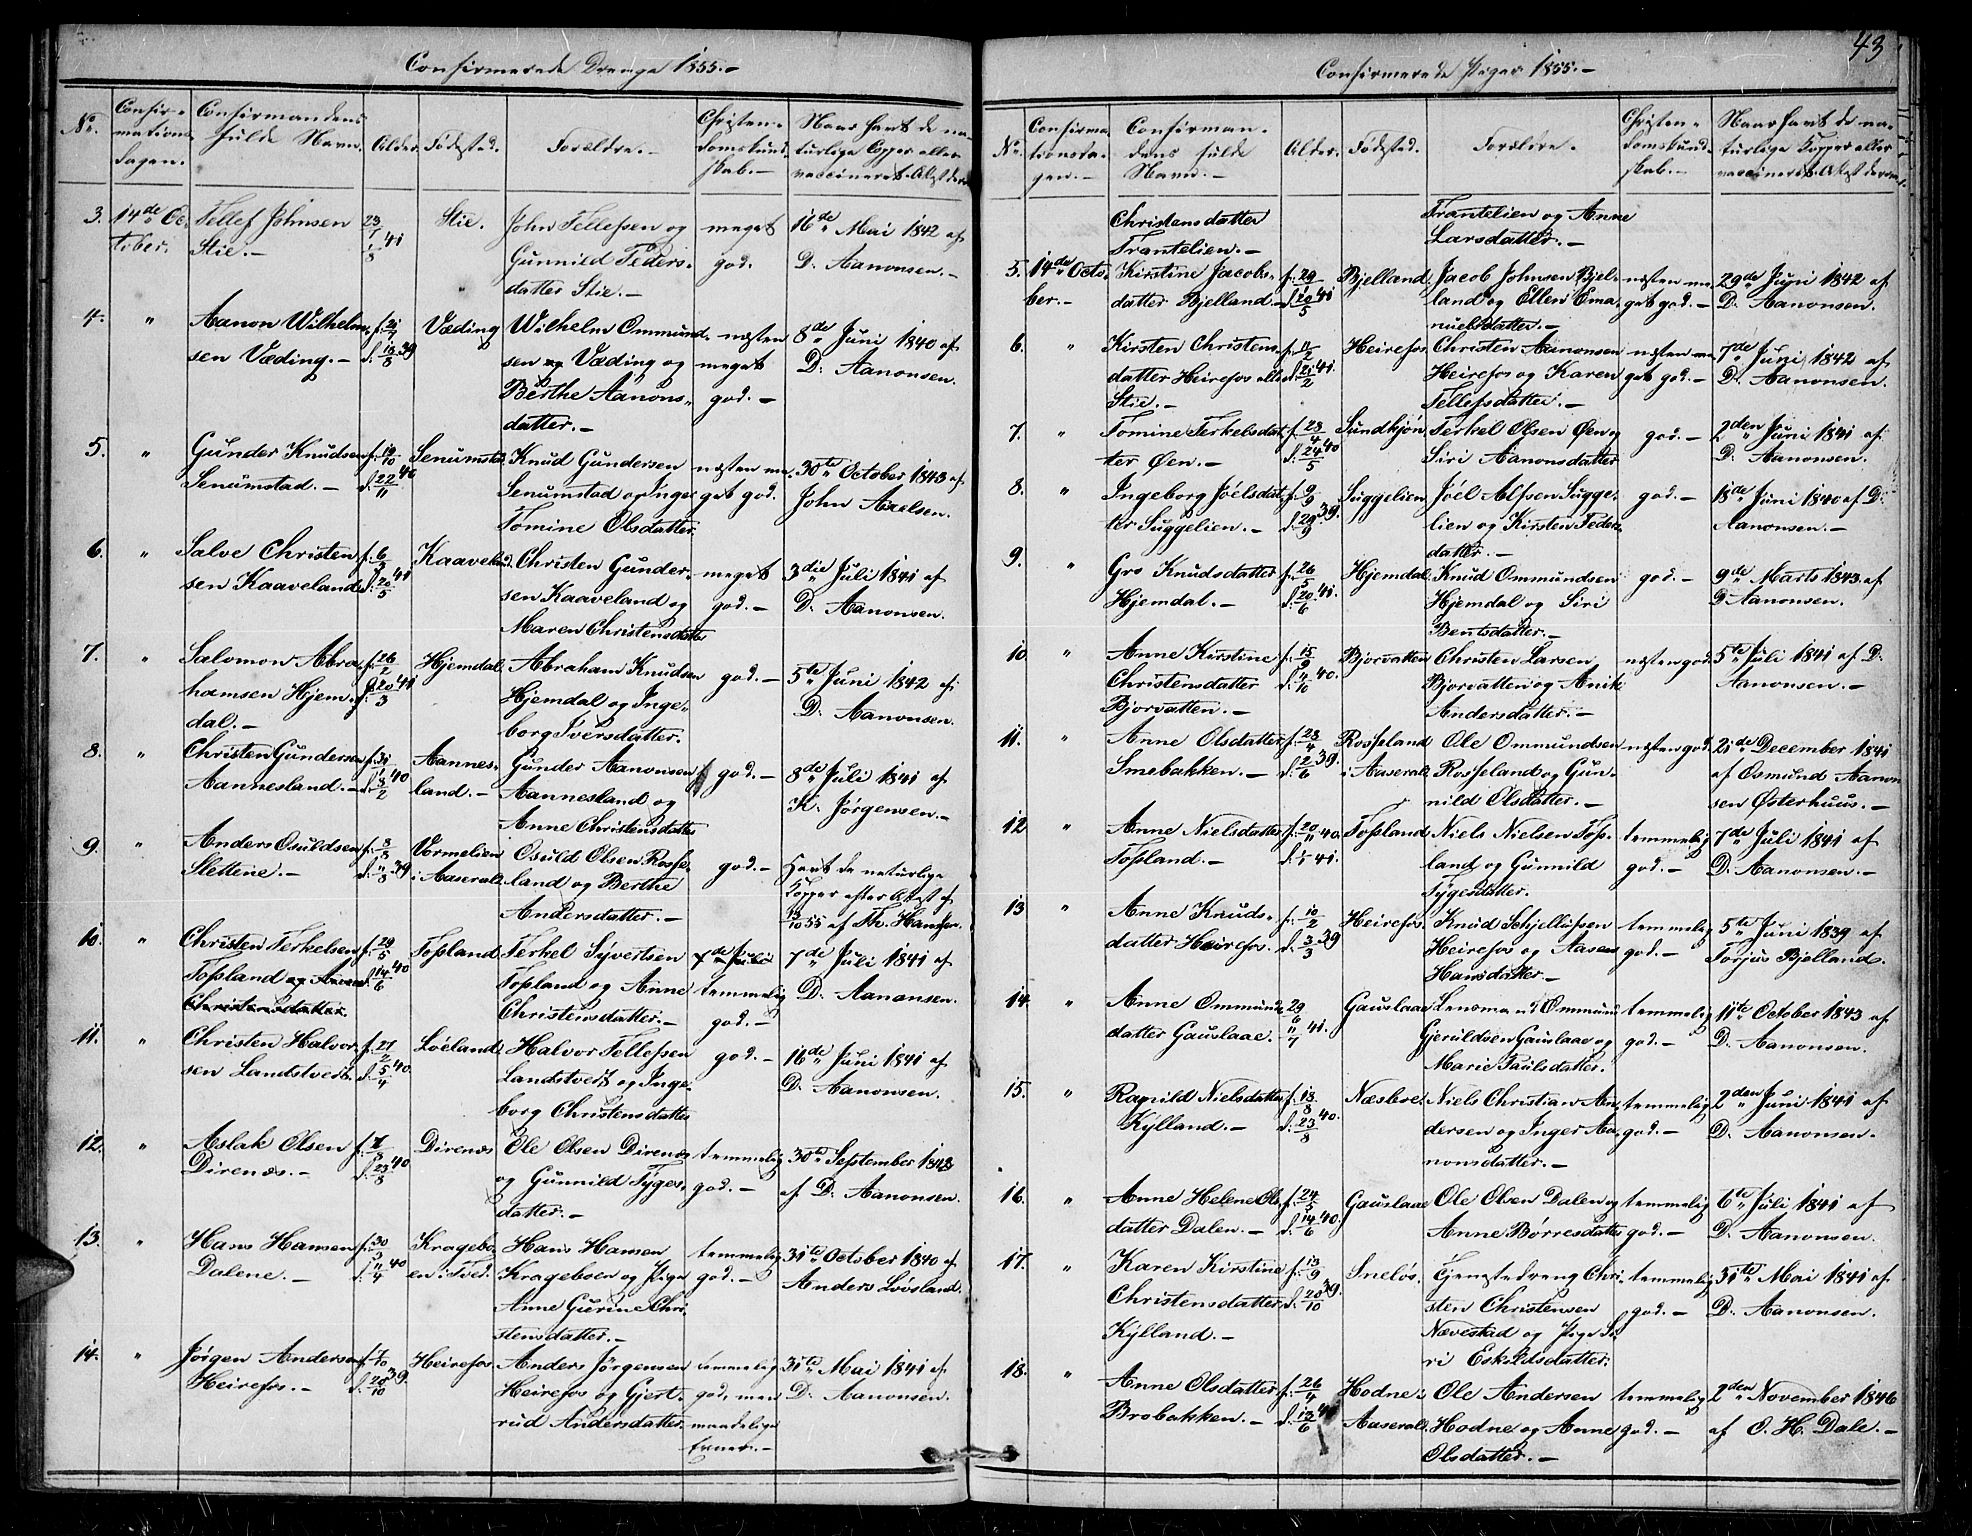 Confirmerede Drenge 1855.-
No.
Confir-
mations
dagen.
Confirmandens
fulde Navn.
Alder.
Fødested.
Forældre.-
Christen-
domskund-
skab.-
Naar havt de na-
turlige Kopper eller
vaccineret. Attest derom
3.
14de Oc-
tober.
Tellef Johnsen
Stie.-
23/7
1/8 41
Stie.
John Tellefsen og
Gunnild Peders-
datter Stie.-
meget
god.
16de Mai 1842 af
D. Aanonsen.-
4.
"
Aanon Wilhelm-
sen Væding.-
f. 21/7
d. 13/8 39
Væding
Wilhelm Ommund-
sen Væding og
Berthe Aanons-
datter.-
næsten
meget
god.-
8de Juni 1840 af
D. Aanonsen.
5.
"
Gunder Knudsen
Senumstad.-
f. 19/10
d. 22/11 40
Senumstad
Knud Gundersen
Senumstad og Inger
Tomine Olsdatter
næsten me-
get god.
30te October 1843 af
John Axelsen.
6.
"
Salve Christen-
sen Kaaveland
f. 6/3
d. 20/5 41
Kaaveland
Christen Gunder-
sen Kaaveland og
Maren Christensdatter
meget
god.-
3die Juli 1841 af
D. Aanonsen.
7.
"
Salomon Abra-
hamsen Hjem-
dal.-
f. 26/2
d. 20/3 41
Hjemdal
Abraham Knudsen
Hjemdal og Inge-
borg Iversdatter.
god.-
5te Juni 1842 af
D. Aanonsen.
8.
"
Christen Gundersen
Aannesland.-
f. 31/1
d. 8/2 40
Aannes-
land.-
Gunder Aanonsen
Aannesland og
Anne Christensdatter
god.-
8de Juli 1841 af
K. Jørgensen.-
9.
"
Anders Osuldsen
Slettene.-
f. 3/8
d. "/8 39
Vormelien
i Aaseral
Osuld Olsen Rosse-
land og Berthe
Andersdatter.-
god.-
Havt de naturlige
Kopper efter Attest af
13/10 55 af Th. Hansen.
10.
"
Christen Terkelsen
Tofsland og Anne
Christensdatter.
f. 29/5
d. 14/6 40
Tofsland
Terkel Syvertsen
Tofsland og Anne
Christensdatter.-
7de Juli
temmelig
god.-
7de Juli 1841 af
D. Aanonsen.
11.
"
Christen Halvor-
sen Landstvert.
f. 27/2
d. 5/4 40
Løeland
Halvor Tellefsen
Landstvert og Inge-
borg Christensdatter
god.-
16de Juni 1841 af
D. Aanonsen.
12.
"
Aslak Olsen
Direnæs.-
d. 23/8 40
Direnæs
Ole Olsen Direnæs
og Gunnild Tyges-
datter.-
temmelig
god.-
30te September 1842
af D. Aanonsen.
13.
"
Hans Hansen
Dalene.-
f. 30/3
d. "/4 40
Kragebo-
en i Tved.
Hans Hansen
Kragebøen og Pige
Anne Gurine Chri-
stensdatter.-
temmelig
god.-
31te October 1840 af
Anders Løvsland.
14.
"
Jørgen Andersen
Heirefos.-
f. 7/10
d. 20/10 39.
Heirefos
Anders Jørgensen
Heirefos og Gjert-
rud Andersdatter.
temmelig
god, men
maadelige
Evner.-
31te Mai 1841 af
D. Aanonsen.
43
Confirmerede Piger 1855.-
No.
Confirma-
tionsda-
gen.-
Confirman-
dens fulde
Navn.-
Alder.
Fødested.
Forældre.-
Christen-
domskund-
skab.-
Naar havt de na-
turlige Kopper eller
vaccineret. Attest derom.
Christensdatter
Trantelien.-
Trantelien og Anne
Larsdatter.-
5.
14de Octo-
ber.-
Kirstine Jacobs-
datter Bjelland.-
f. 29/"
d. 20/5 41
Bjelland
Jacob Johnsen Bjel-
land og Ellen Ema-
nuelsdatter.-
næsten me-
get god.-
29de Juni 1842 af
D. Aanonsen.
6.
"
Kirsten Christens-
datter Heirefos eller
Stie.-
f. 11/2
d. 21/2 41.
Heirefos
Christen Aanonsen
Heirefos og Karen
Tellefsdatter.-
næsten me-
get god.-
7de Juni 1842 af
D. Aanonsen.
7.
"
Tomine Terkelsdat-
ter Øen.-
f. 23/4
d. 24/5 40
Sundkjøn
Terkel Olsen Øen og
Siri Aanonsdatter
god.-
2den Juni 1841 af
D. Aanonsen.
8.
"
Ingeborg Joelsdat-
ter Suggelien.-
f. 9/9
d. 29/9 39.
Suggelien
Joel Alfsen Sugge-
lien og Kirsten Peders-
datter.-
god.-
18de Juni 1840 af D.
Aanonsen.-
9.
"
Gro Knudsdatter
Hjemdal.-
f. 26/5
d. 20/6 41.
Hjemdal
Knud Ommundsen
Hjemdal og Siri
Bentsdatter.-
god.-
9de Marts 1843 af
D. Aanonsen.
10
"
Anne Kirstine
Christensdatter
Bjorvatten.-
f. 15/9
d. "/10 40.
Bjorvatten
Christen Larsen
Bjorvatten og Anik
Andersdatter.-
næsten god.
5te Juli 1841 af D.
Aanonsen.-
11.
"
Anne Olsdatter
Smebakken.-
f. 28/4
d. 2/6 39.
Rosseland
i Aaseral
Ole Ommundsen
Rosseland og Gun-
nild Olsdatter.-
næsten god.
21de December 1841
af Osmund Aanon-
sen Østerhuus.-
12
"
Anne Nielsdatter
Tofsland.-
f. 20/" 40.
d. 1/" 41.
Tofsland
Niels Nielsen Tofs-
land og Gunnild
Tygesdatter.
temmelig
god.-
7de Juli 1841 af
D. Aanonsen.-
13
"
Anne Knuds-
datter Heirefos.
f. 10/2
d. 3/3 39
Heirefos.
Knud Schjellufsen
Heirefos og Aasen
Hansdatter.-
temmelig
god.-
5te Juni 1839 af
Torjus Bjelland.
14.
"
Anne Ommunds-
datter Gauslaae.-
29/6
"/7 41.
Gauslaae
Lensmand Ommund
Gjeruldsen Gauslaae og
Marie Paulsdatter.
temmelig
god.-
11te October 1843 af
D. Aanonsen.
15.
"
Ragnild Nielsdatter
Kylland.-
f. 18/8
d. 23/8 40.
Næsbøe.
Niels Christian An-
dersen og Inger Aa-
nonsdatter.-
temmelig
god.-
2den Juni 1841 af
D. Aanonsen.
16.
"
Anne Helene Ols-
datter Dalen.-
f. 24/5
d. 14/6 40.
Gauslaae
Ole Olsen Dalen og
Anne Børresdatter
temmelig
god.-
6te Juli 1841 af
D. Aanonsen.
17.
"
Karen Kirstine
Christensdatter
Kylland.-
f. 13/9
d. 20/10 39.
Sneløs.
Tjenestedreng Chri-
sten Christensen
Nævestad og Pige Si-
ri Eskildsdatter.
temmelig
god.-
31te Mai 1841 af
D. Aanonsen.
18.
"
Anne Olsdatter
Brobakken.-
f. 26/4
d. 13/6
Hodne i
Aaseral.
Ole Andersen
Hodne og Anne
Olsdatter.-
temmelig
god.-
2den November 1846
af O. H. Dale.-